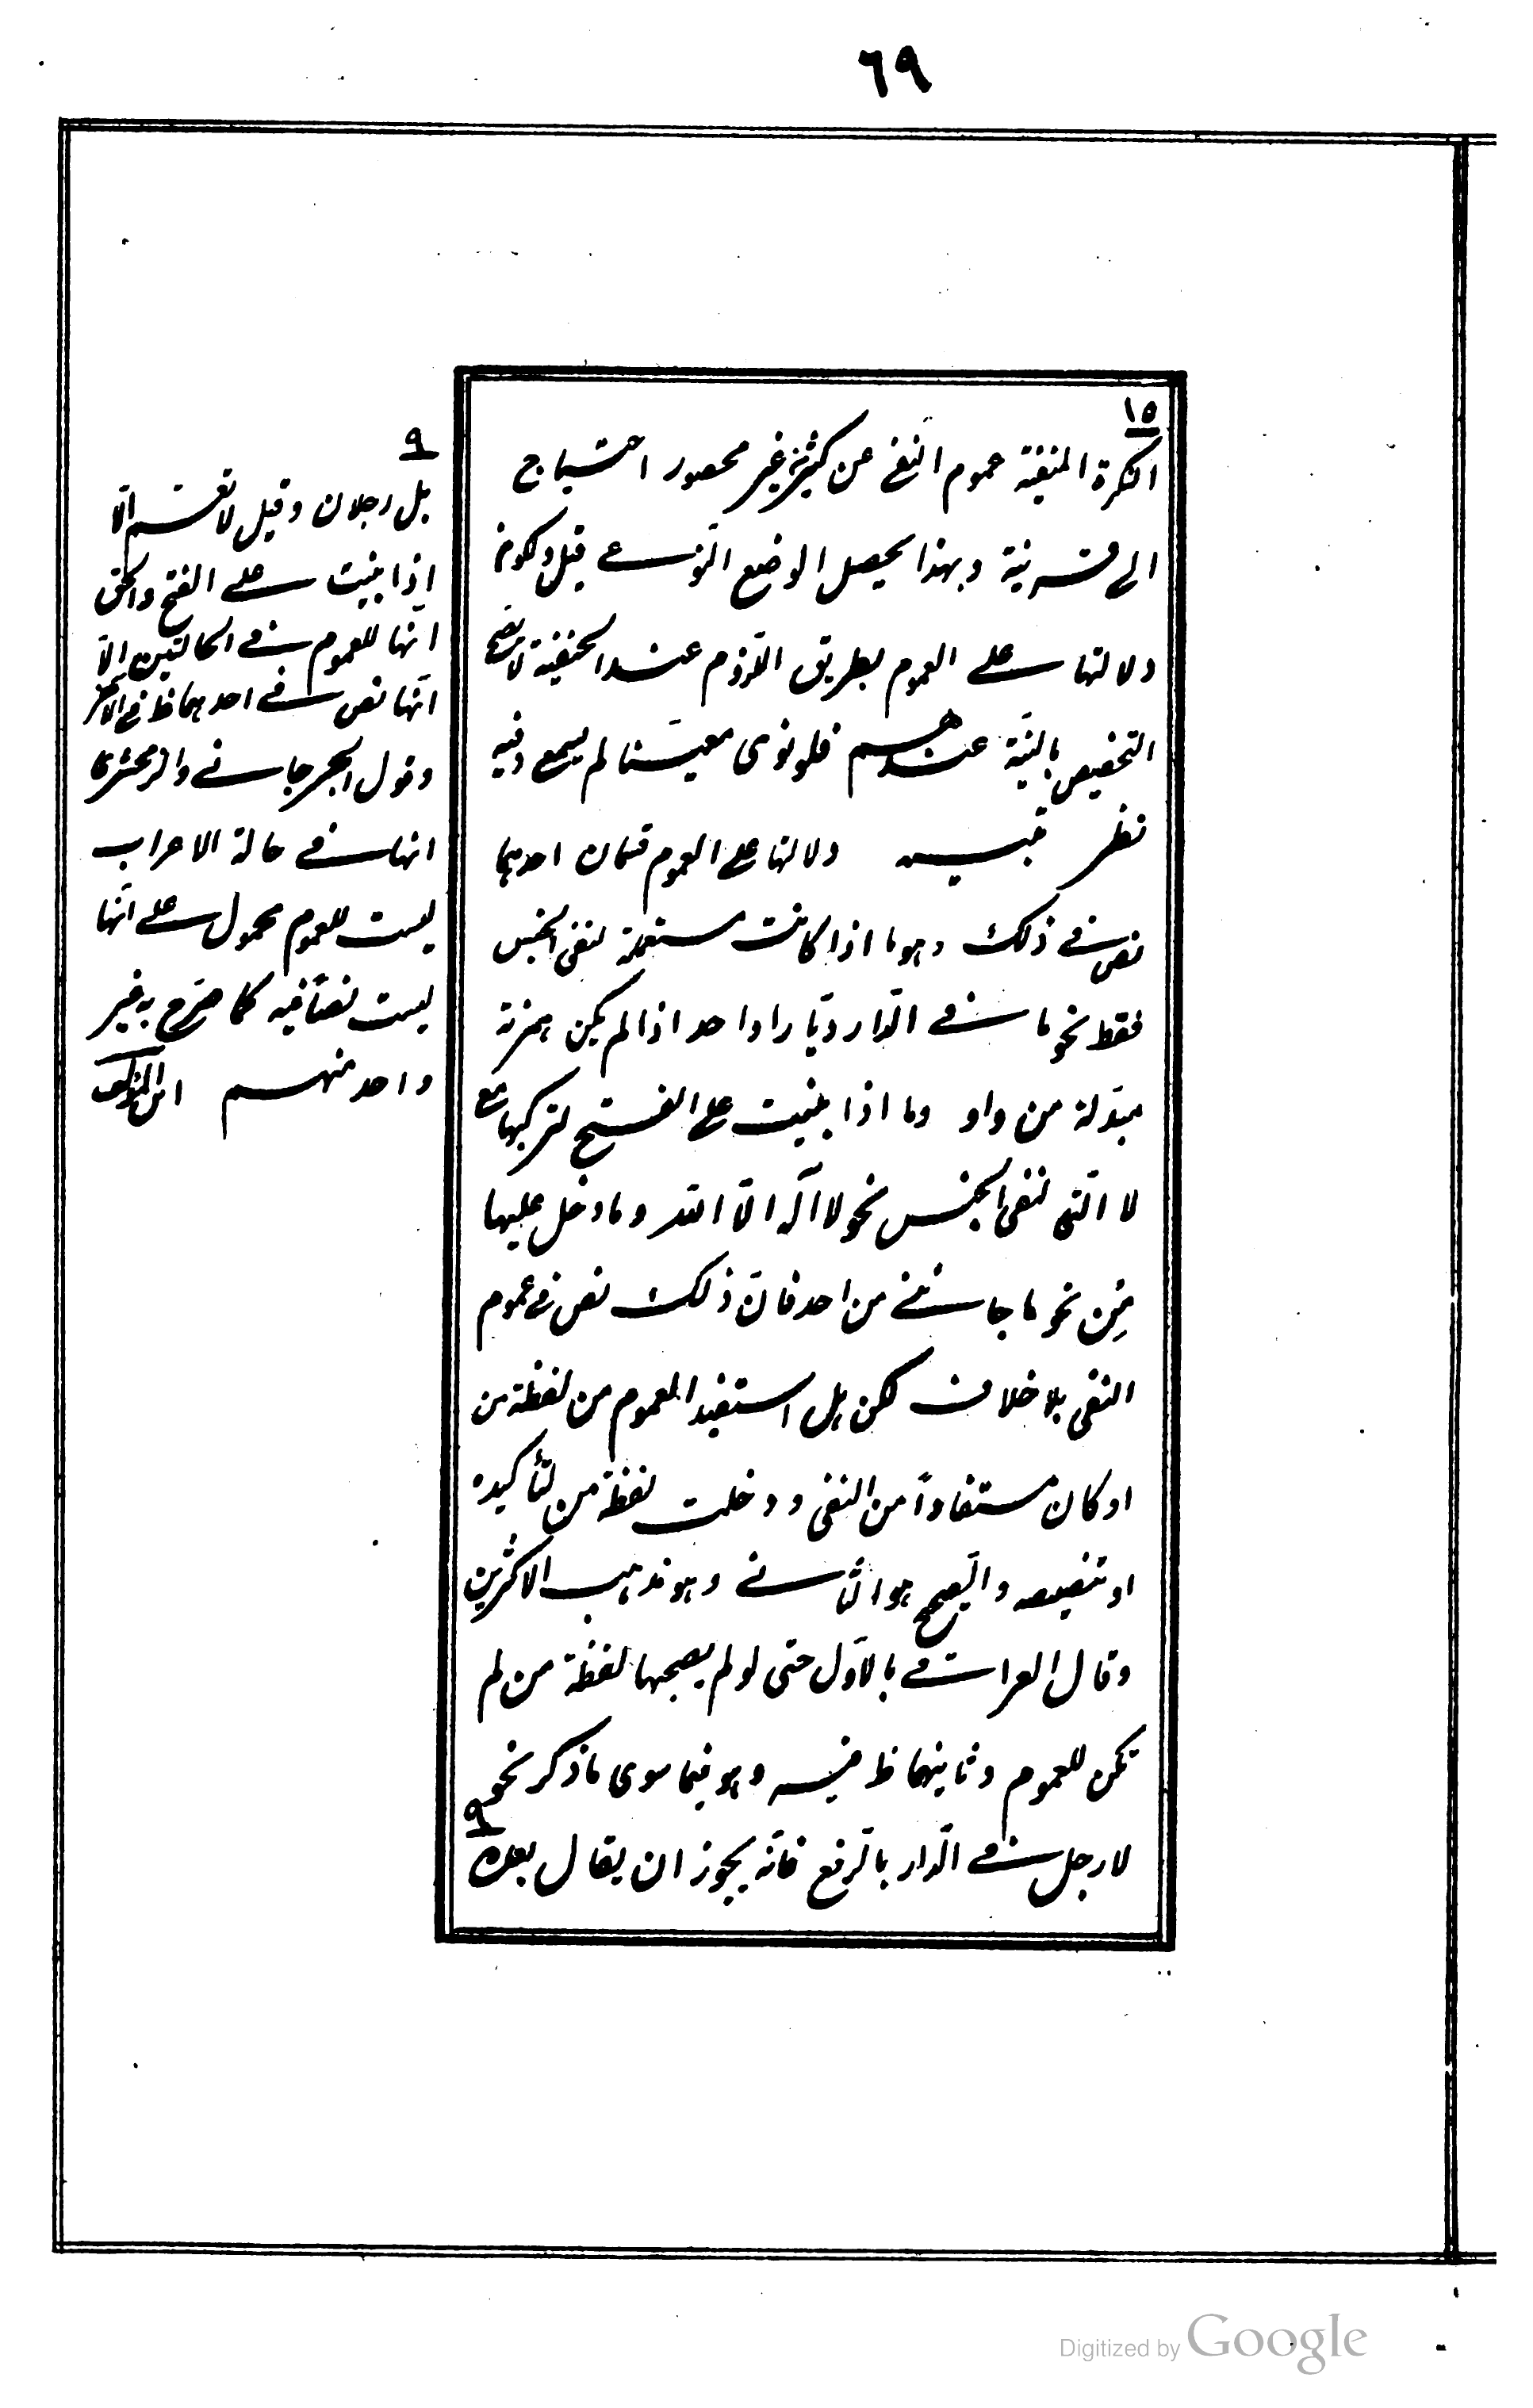 ٦٩
١٥
النكرة المنفية عموم النفى عن كثيرين غير محصور احتياج
الى قرينة وبهذا يحصل الوضع النوعى قيل ولكون
دلالتها على العموم بطريق اللزوم عند الحنفية لا يصح
التخصيص بالنية عندهم فلو نوى معينا لم يسمع وفيه
نظر تنبيه دلالتها على العموم قسمان احدهما
نص فى ذلك وهو ما اذا كانت مستعملة لنفى الجنس
فقط نحو ما فى الدار ديّارا واحد اذا لم يكن همزته
مبدلة من واو وما اذا بنيت على الفتح لتركبها مع
لا التى لنفى الجنس نحو لا اله الا الله وما دخل عليها
مِن نحو ما جائنى من احد فانّ ذلك نص فى عموم
النفى بلا خلاف لكن هل استفيد العموم من لفظة من
او كان مستفاداً من النفى ودخلت لفظة من لتأكيده
او تنصيصه والصحيح هو الثانى وهو مذهب الاكثرين
وقال العراقى بالاوّل حتى لو لم يصحبها لفظة من لم
تكن للعموم وثانيهما ظ فيه وهو فيما سوى ما ذكر نحو
لا رجل فى الدار بالرفع فانّه يجوز ان يقال بعده ٩
٩
بل رجلان وقيل لا تعم الّا
اذا بنيت على الفتح والحق
انّها للعموم فى الحالتين الّا
انّها نص فى احدهما ظ فى الاخر
وقول الجرجانى والزمخشرى
انها فى حالة الاعراب
ليست للعموم محمول على انّها
ليست نصاً فيه كما صرّح به غير
واحد منهم ابن المؤلف
Digitized by Google